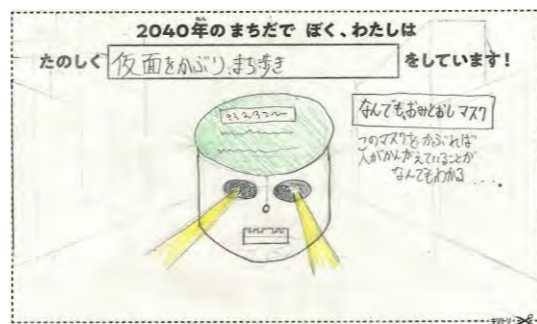 2040年のまちだで ぼく、わたしは
たのしく 仮面をかぶり、まち歩き をしています!
なんでも、おみとおし マスク
このマスクをかぶれば
人がかんがえていることが
なんでもわかる ....
キリトリ